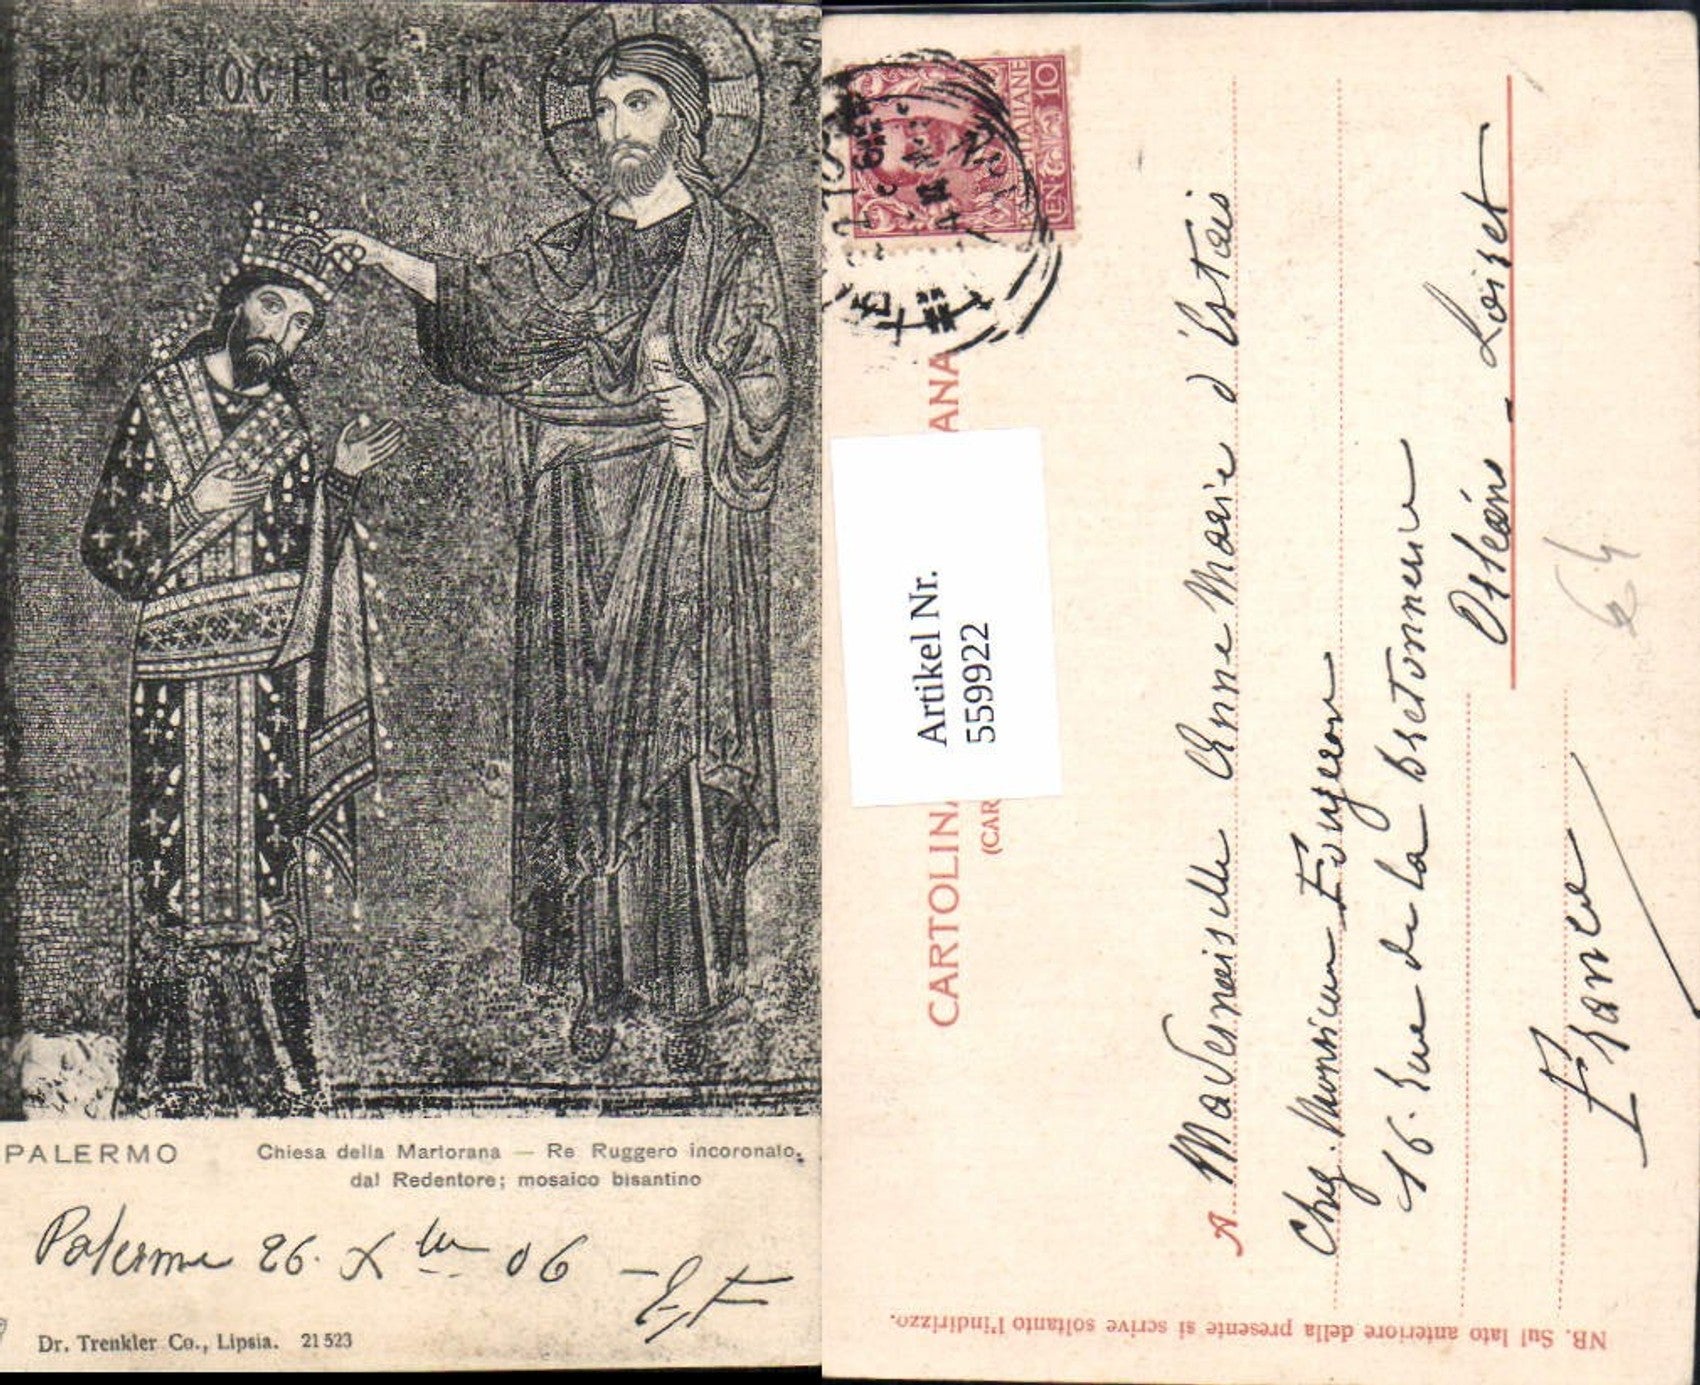 ΡΟΓΕΡΙΟϹ ΡΗΞ ΙϹ Χ
PALERMO Chiesa della Martorana — Re Ruggero incoronato
dal Redentore; mosaico bisantino
Palerme 26. Xbre 06 – E, F
Dr. Trenkler Co., Lipsia. 21523
CENT. 10
ITALIANE
CARTOLINA ANA
(CAR
Artikel Nr.
5599922
A Mademoiselle Anne Marie d'Estais
Chez. Monsieur Fougeron
16. Rue de la Bretonnerie
Orléans - Loiret
France
NB. Sul lato anteriore della presente si scrive soltanto l'indirizzo.